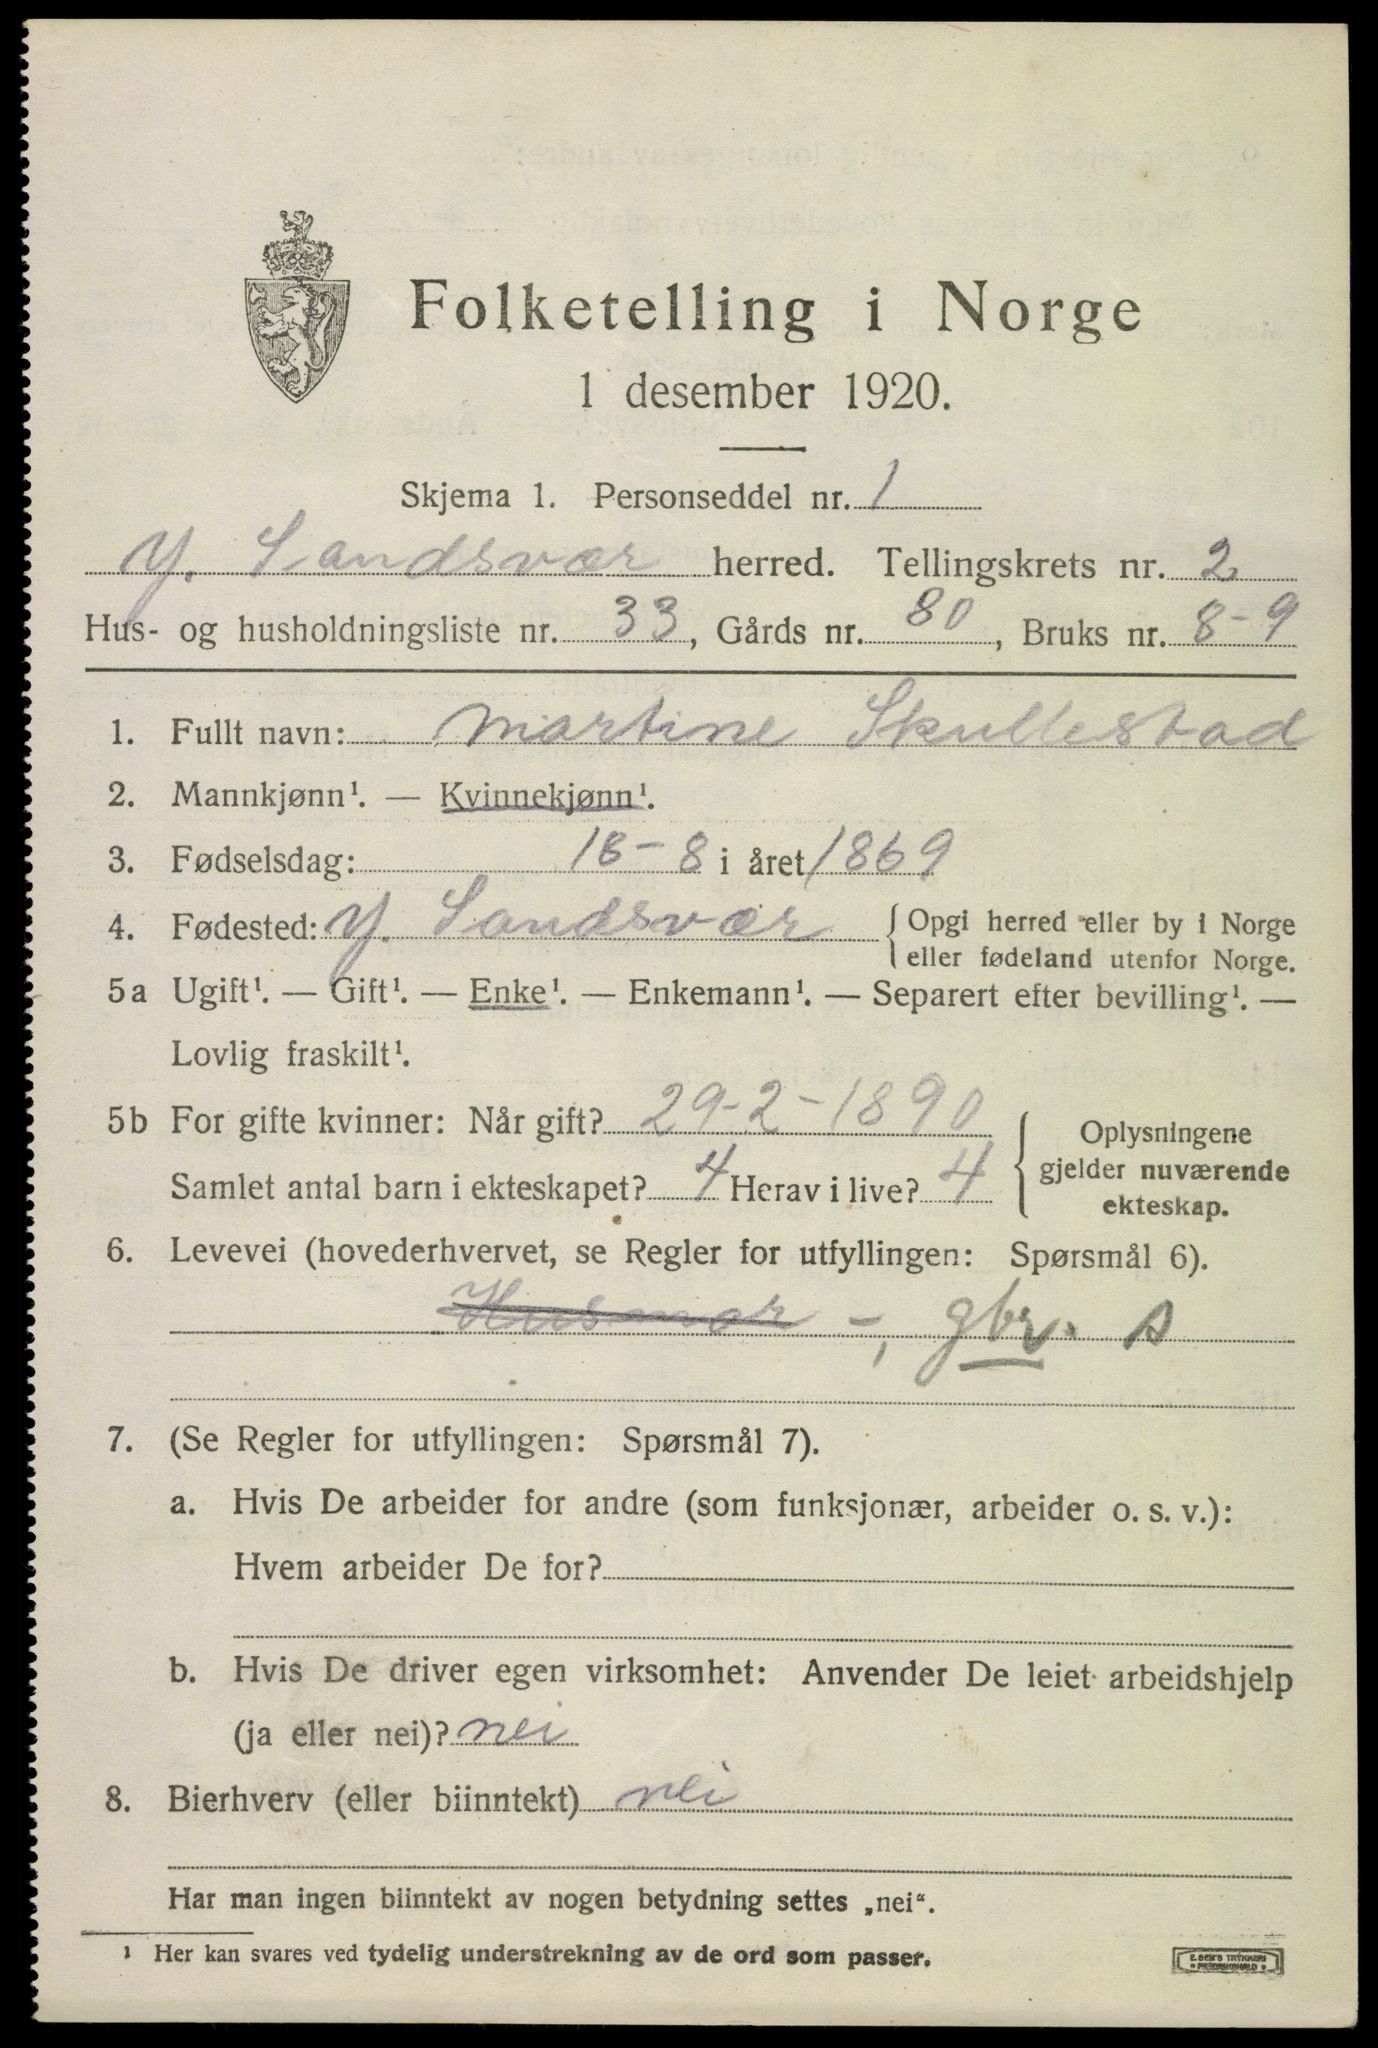 Folketelling i Norge
1 desember 1920.
Skjema 1. Personseddel nr. 1
Y. Sandsvær herred. Tellingskrets nr. 2
Hus- og husholdningsliste nr. 33, Gårds nr. 80, Bruks nr. 8-9
1. Fullt navn: Martine Skullestad
2. Mannkjønn¹. — Kvinnekjønn¹.
3. Fødselsdag: 18-8 i året 1869
4. Fødested: Y. Sandsvær { Opgi herred eller by i Norge
eller fødeland utenfor Norge.
5a Ugift¹. — Gift¹. — Enke¹. — Enkemann¹. — Separert efter bevilling¹. —
Lovlig fraskilt¹.
5b For gifte kvinner: Når gift? 29-2-1890
Samlet antal barn i ekteskapet? 4 Herav i live? 4
Oplysningene
gjelder nuværende
ekteskap.
6. Levevei (hovederhvervet, se Regler for utfyllingen: Spørsmål 6).
Husmor -, gbr. s
7. (Se Regler for utfyllingen: Spørsmål 7).
a. Hvis De arbeider for andre (som funksjonær, arbeider o. s. v.):
Hvem arbeider De for?
b. Hvis De driver egen virksomhet: Anvender De leiet arbeidshjelp
(ja eller nei)? nei
8. Bierhverv (eller biinntekt) nei
Har man ingen biinntekt av nogen betydning settes „nei“.
¹ Her kan svares ved tydelig understrekning av de ord som passer.